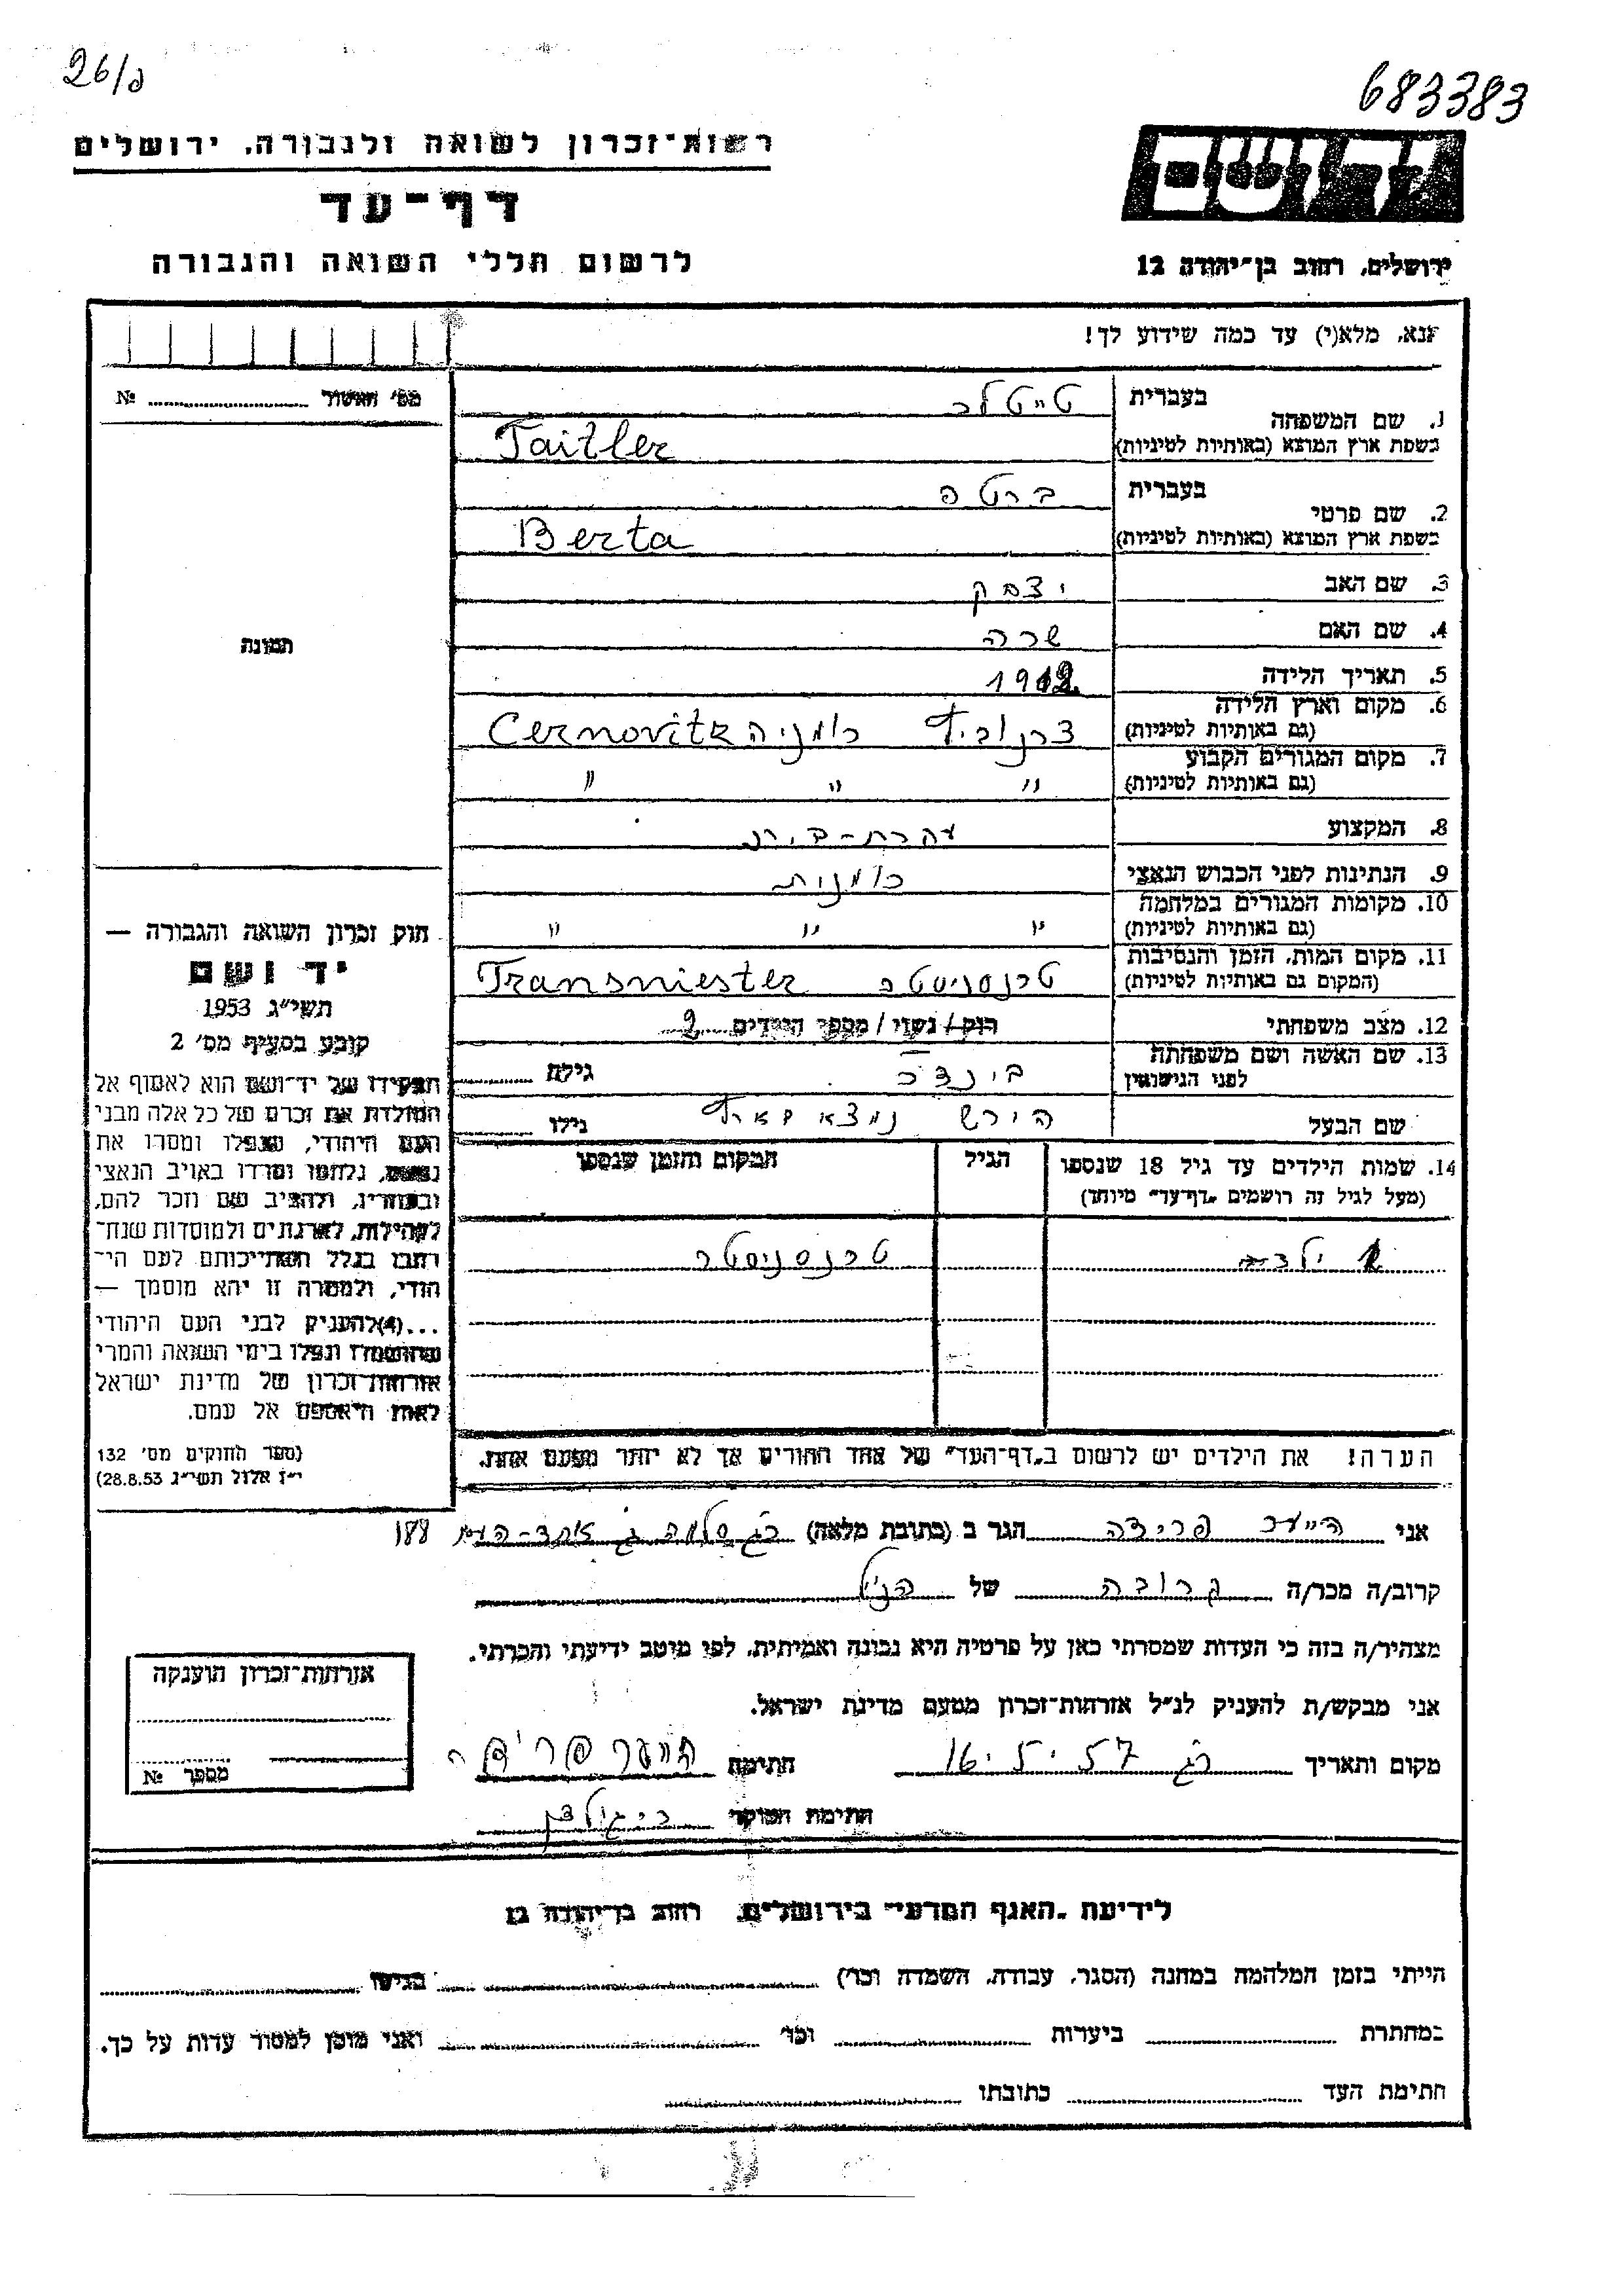 26/ם
683383
רשות־זכרון לשואה ולגבורה, ירושלים
דף־עד
לרשום חללי השואה והגבורה
יד ושם
ירושלים, רחוב בן־יהודה 12
נא, מלא(י) עד כמה שידוע לך!
מס' האשור № 
1. שם המשפחה
בעברית טייטלר
בשפת ארץ המוצא (באותיות לטיניות) Taitler
2. שם פרטי
בעברית ברטה
בשפת ארץ המוצא (באותיות לטיניות) Berta
3. שם האב יצחק
4. שם האם שרה
5. תאריך הלידה 1912
6. מקום וארץ הלידה (גם באותיות לטיניות) צרנוביץ רומניה Cernovitz
7. מקום המגורים הקבוע (גם באותיות לטיניות) " " "
8. המקצוע עקרת-בית
9. הנתינות לפני הכבוש הנאצי רומנית
10. מקומות המגורים במלחמה (גם באותיות לטיניות) " " "
11. מקום המות, הזמן והנסיבות (המקום גם באותיות לטיניות) טרנסניסטר Transniester
12. מצב משפחתי רוק/נשוי/מספר הילדים 2
13. שם האשה ושם משפחתה לפני הנישואין בינדר גילה
שם הבעל הירש נמצא בארץ גילו
14. שמות הילדים עד גיל 18 שנספו
(מעל לגיל זה רושמים „דף־עד" מיוחד)
הגיל
המקום והזמן שנספו
טרנסניסטר
הערה! את הילדים יש לרשום ב„דף־העד" של אחד ההורים אך לא יותר מפעם אחת.
תמונה
חוק זכרון השואה והגבורה —
יד ושם
תשי"ג 1953
קובע בסעיף מס' 2
תפקידו של יד־ושם הוא לאסוף אל
המולדת את זכרם של כל אלה מבני
העם היהודי, שנפלו ומסרו את
נפשם, נלחמו ומרדו באויב הנאצי
ובעוזריו, ולהציב שם וזכר להם,
לקהילות, לארגונים ולמוסדות שנח־
רבו בגלל השתייכותם לעם הי־
הודי, ולמטרה זו יהא מוסמך —
...(4) להעניק לבני העם היהודי
שהושמדו ונפלו בימי השואה והמרי
אזרחות־זכרון של מדינת ישראל
לאות היאספם אל עמם.
(ספר החוקים מס' 132
י"ז אלול תשי"ג 28.8.53)
אני פרידה הגר ב (כתובת מלאה) 188
קרוב/ה מכר/ה קרובה של הנ"ל
מצהיר/ה בזה כי העדות שמסרתי כאן על פרטיה היא נכונה ואמיתית, לפי מיטב ידיעתי והכרתי.
אני מבקש/ת להעניק לנ"ל אזרחות־זכרון מטעם מדינת ישראל.
מקום ותאריך רג 16.5.57 חתימה
חתימת הפוקד
אזרחות־זכרון הוענקה
מספר №
לידיעת „האגף המדעי" בירושלים, רחוב בן־יהודה 12
הייתי בזמן המלחמה במחנה (הסגר, עבודה, השמדה וכו') בגיטו
במחתרת ביערות וכו' ואני מוכן למסור עדות על כך.
חתימת העד כתובתו